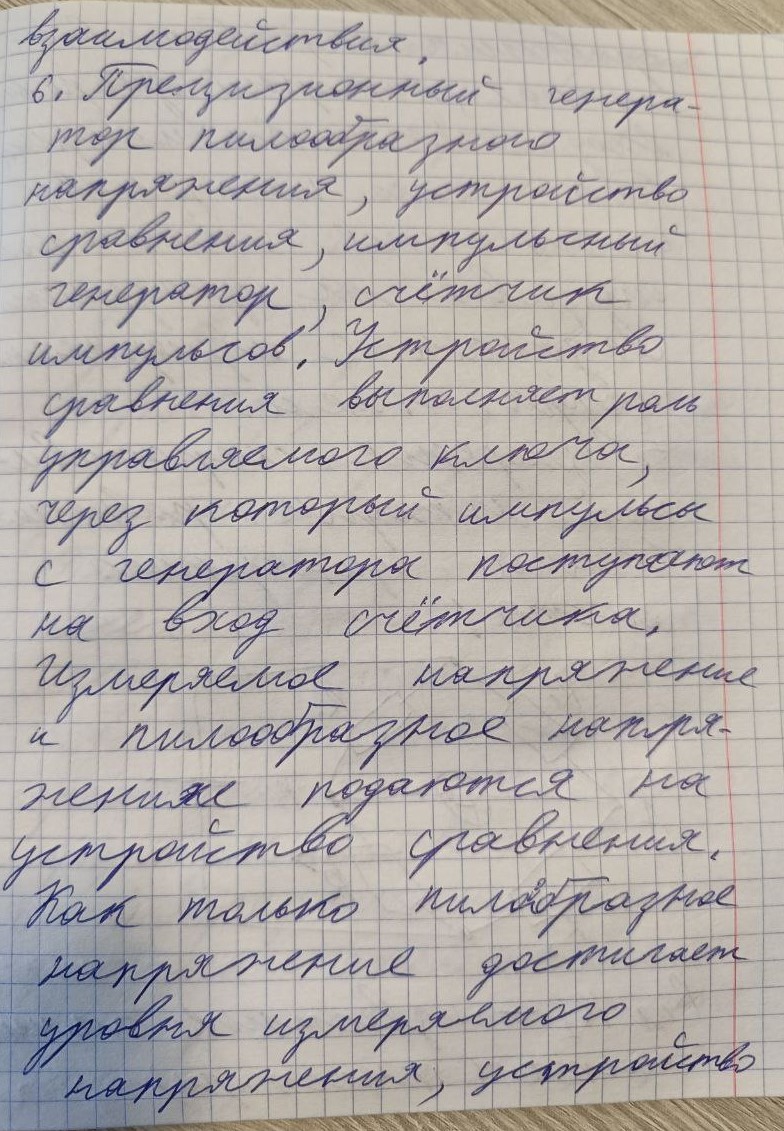 взаимодействия.
6. Прецизионный генера-
тор пилообразного
напряжения, устройство
сравнения, импульсный
генератор, счётчик
импульсов. Устройство
сравнения выполняет роль
управляемого ключа,
через который импульсы
с генератора поступают
на вход счётчика.
Измеряемое напряжение
и пилообразное напря-
жение подаются на
устройство сравнения.
Как только пилообразное
напряжение достигает
уровня измеряемого
напряжения, устройство